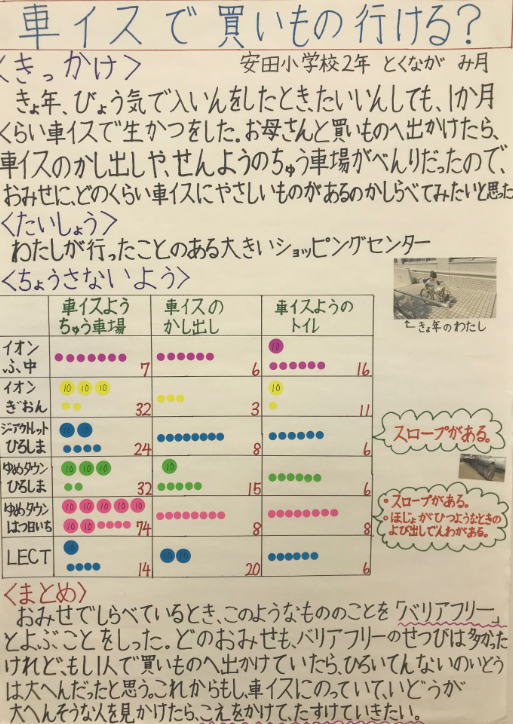 車イスで買いもの行ける?
〈きっかけ〉
安田小学校2年 とくなが み月
きょ年、びょう気で入いんをしたとき、たいいんしても、1か月
くらい車イスで生かつをした。お母さんと買いものへ出かけたら、
車イスのかし出しや、せんようのちゅう車場がべんりだったので、
おみせに、どのくらい車イスにやさしいものがあるのかしらべてみたいと思った
〈たいしょう〉
わたしが行ったことのある大きいショッピングセンター
〈ちょうさないよう〉
←きょ年のわたし
車イスよう
ちゅう車場
車イスの
かし出し
車イスようの
トイレ
イオン
ふ中
7
6
10
16
イオン
ぎおん
10 10 10
32
3
10
11
ジ・アウトレット
ひろしま
10 10
24
8
6
スロープがある。
ゆめタウン
ひろしま
10 10 10
32
10
15
6
ゆめタウン
はつ日いち
10 10 10 10 10
10 10
74
8
8
・スロープがある。
・ほじょがひつようなときの
よび出しでんわがある。
LECT
10
14
10 10
20
6
〈まとめ〉
おみせでしらべているとき、このようなもののことを「バリアフリー」
とよぶことをしった。どのおみせも、バリアフリーのせつびは多かった
けれど、もし1人で買いものへ出かけていたら、ひろいてんないのいどう
は大へんだったと思う。これからもし、車イスにのっていて、いどうが
大へんそうな人を見かけたら、こえをかけて、たすけていきたい。